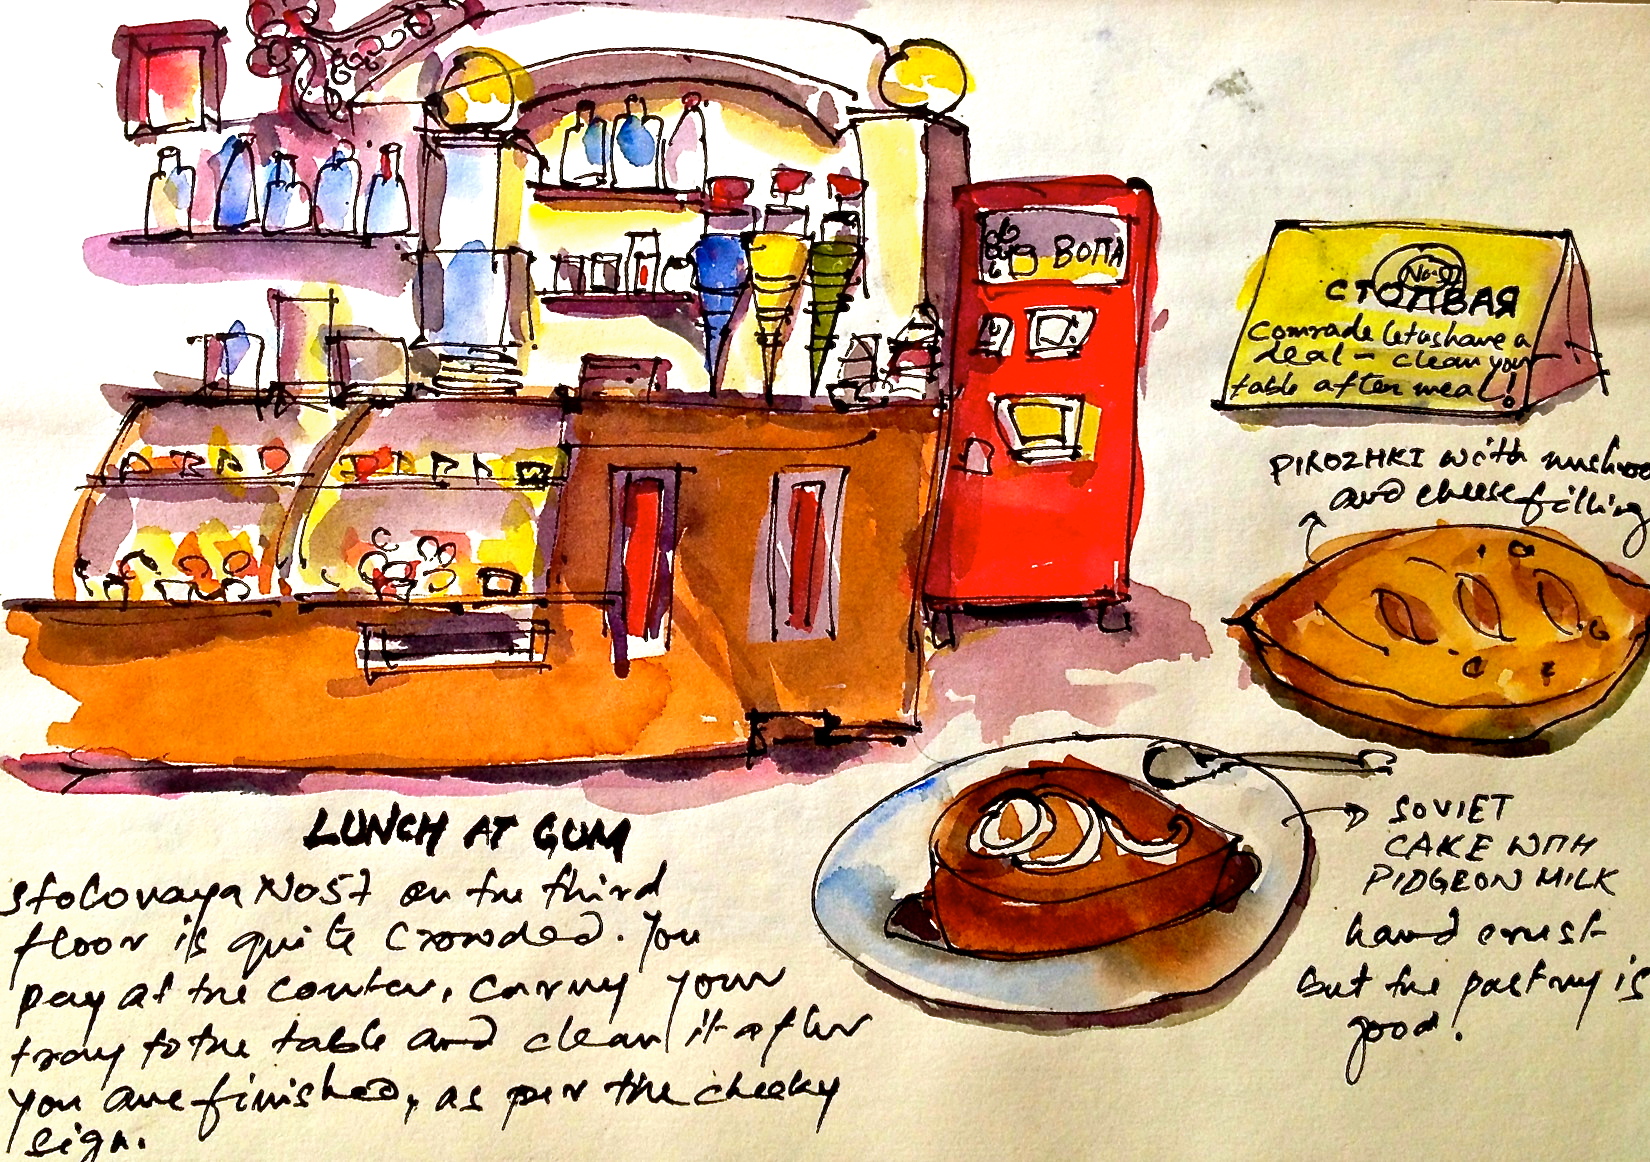 ВОПА
No 57
СТОПВАЯ
Comrade let us have a
deal - clean your
table after meal!
PIROZHKI with mushroo
and cheese filling
LUNCH AT GUM
Stolovaya No57 on the third
floor is quite crowded. You
pay at the counter, carry your
tray to the table and clean it after
you are finished, as per the cheeky
sign.
SOVIET
CAKE WITH
PIDGEON MILK
hard crust
but the pastry is
good.